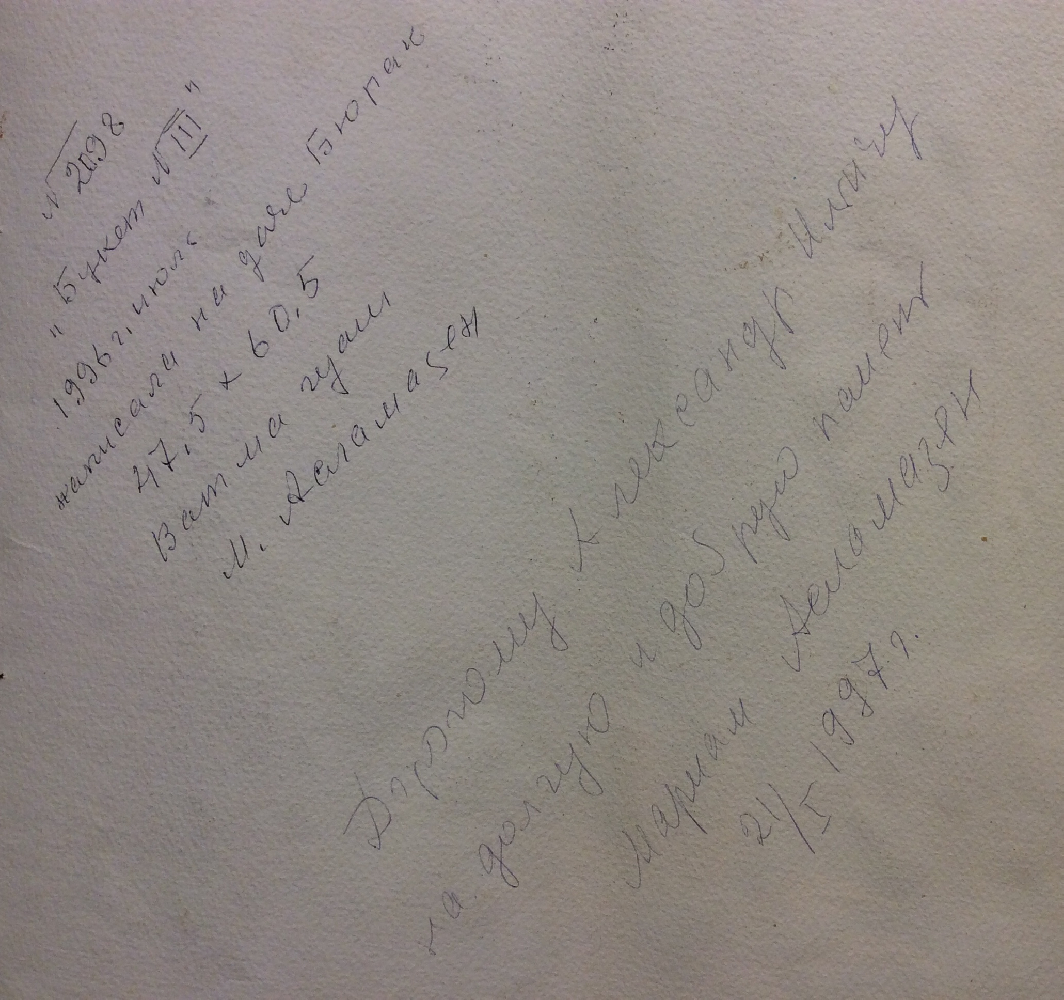 N 2098
„Букет N III"
1996 г. июль
написала на даче Бюрак
47,5 x 60,5
Ватман гуаш
М. Асламазян
Дорогому Александр Ильичу
на долгую и добрую память
Мариам Асламазян
21/I 1997 г.